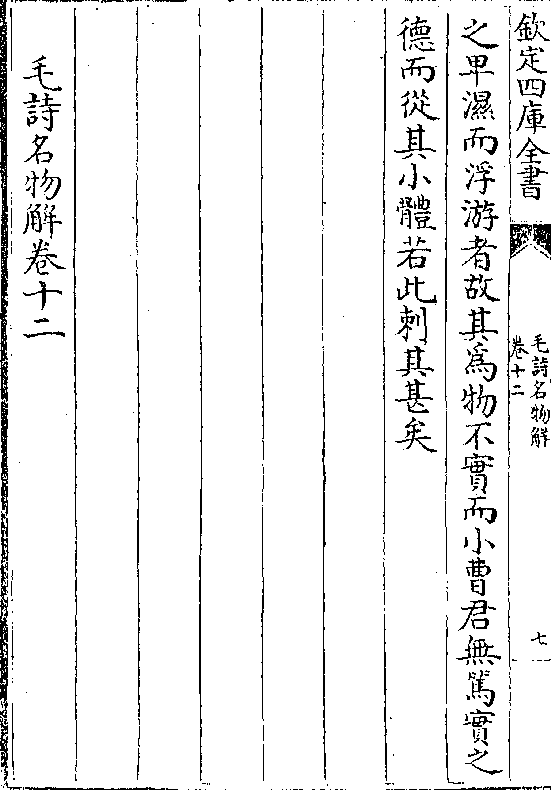 欽定四庫全書
毛詩名物解
卷十二
七
之卑濕而浮游者故其為物不實而小曹君無篤實之
德而從其小體若此刺其甚矣
毛詩名物解卷十二